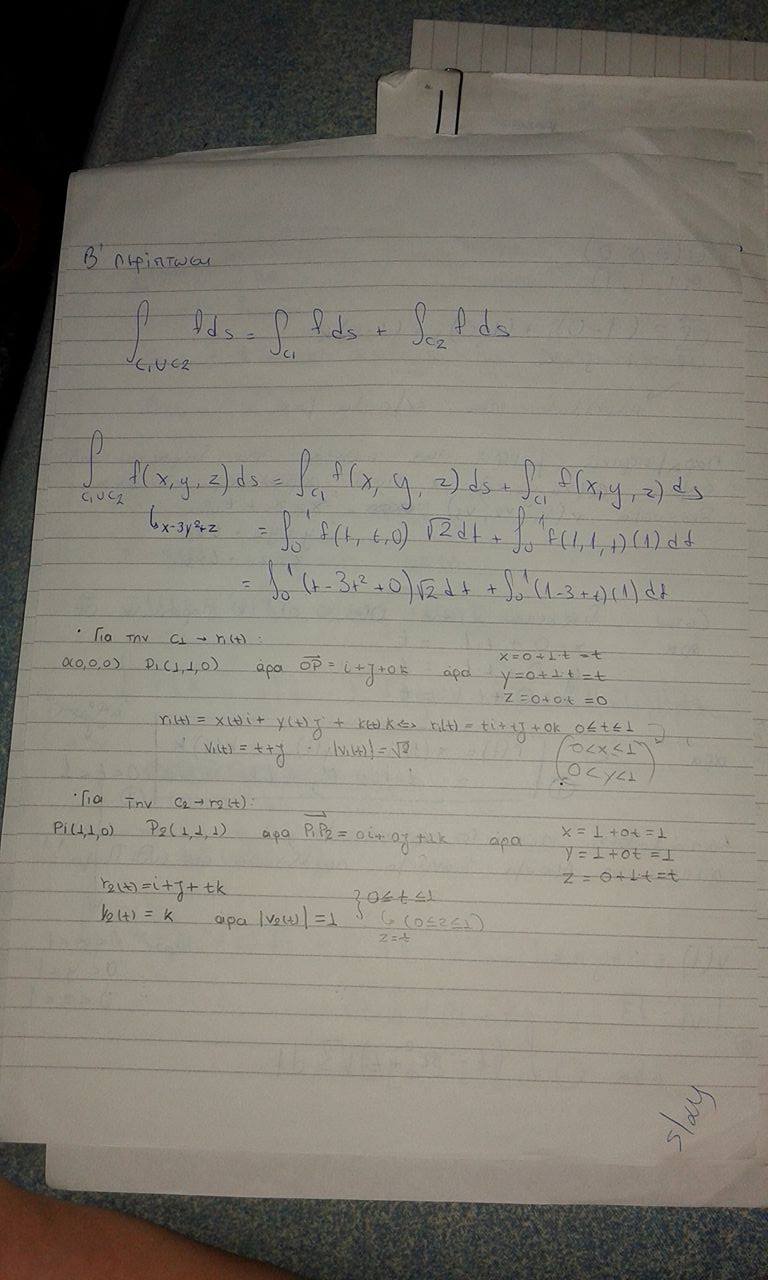 Β' περίπτωση
∫_{C₁∪C₂} f ds = ∫_{C₁} f ds + ∫_{C₂} f ds
∫_{C₁∪C₂} f(x,y,z) ds = ∫_{C₁} f(x,y,z) ds + ∫_{C₁} f(x,y,z) ds
↳ x-3y²+z = ∫₀¹ f(t,t,0) √2 dt + ∫₀¹ f(1,1,t)(1) dt
= ∫₀¹ (t-3t²+0)√2 dt + ∫₀¹ (1-3+t)(1) dt
· Για την C₁ → r₁(t):
O(0,0,0) P₁(1,1,0) άρα OP = i+j+0k άρα x=0+1·t=t
y=0+1·t=t
z=0+0·t=0
r₁(t) = x(t)i + y(t)j + k(t)k ⇔ r₁(t) = ti+tj+0k 0≤t≤1
V₁(t) = t+j · |V₁(t)| = √2 (0<x<1
0<y<1)
· Για την C₂ → r₂(t):
P₁(1,1,0) P₂(1,1,1) άρα P₁P₂ = 0i+0j+1k άρα x=1+0t=1
y=1+0t=1
z=0+1·t=t
r₂(t)=i+j+tk
V₂(t) = k άρα |V₂(t)|=1 } 0≤t≤1
↳ (0≤z≤1)
z=t
slay